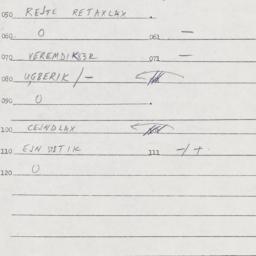 050 RESTE RETAXLAX .
060 0 061 —
070 VEREMDIKSER 071 —
080 UGBERIK /-
090 0 .
100 CEJNDLAX
110 EJN USTIK 111 -/+
120 0